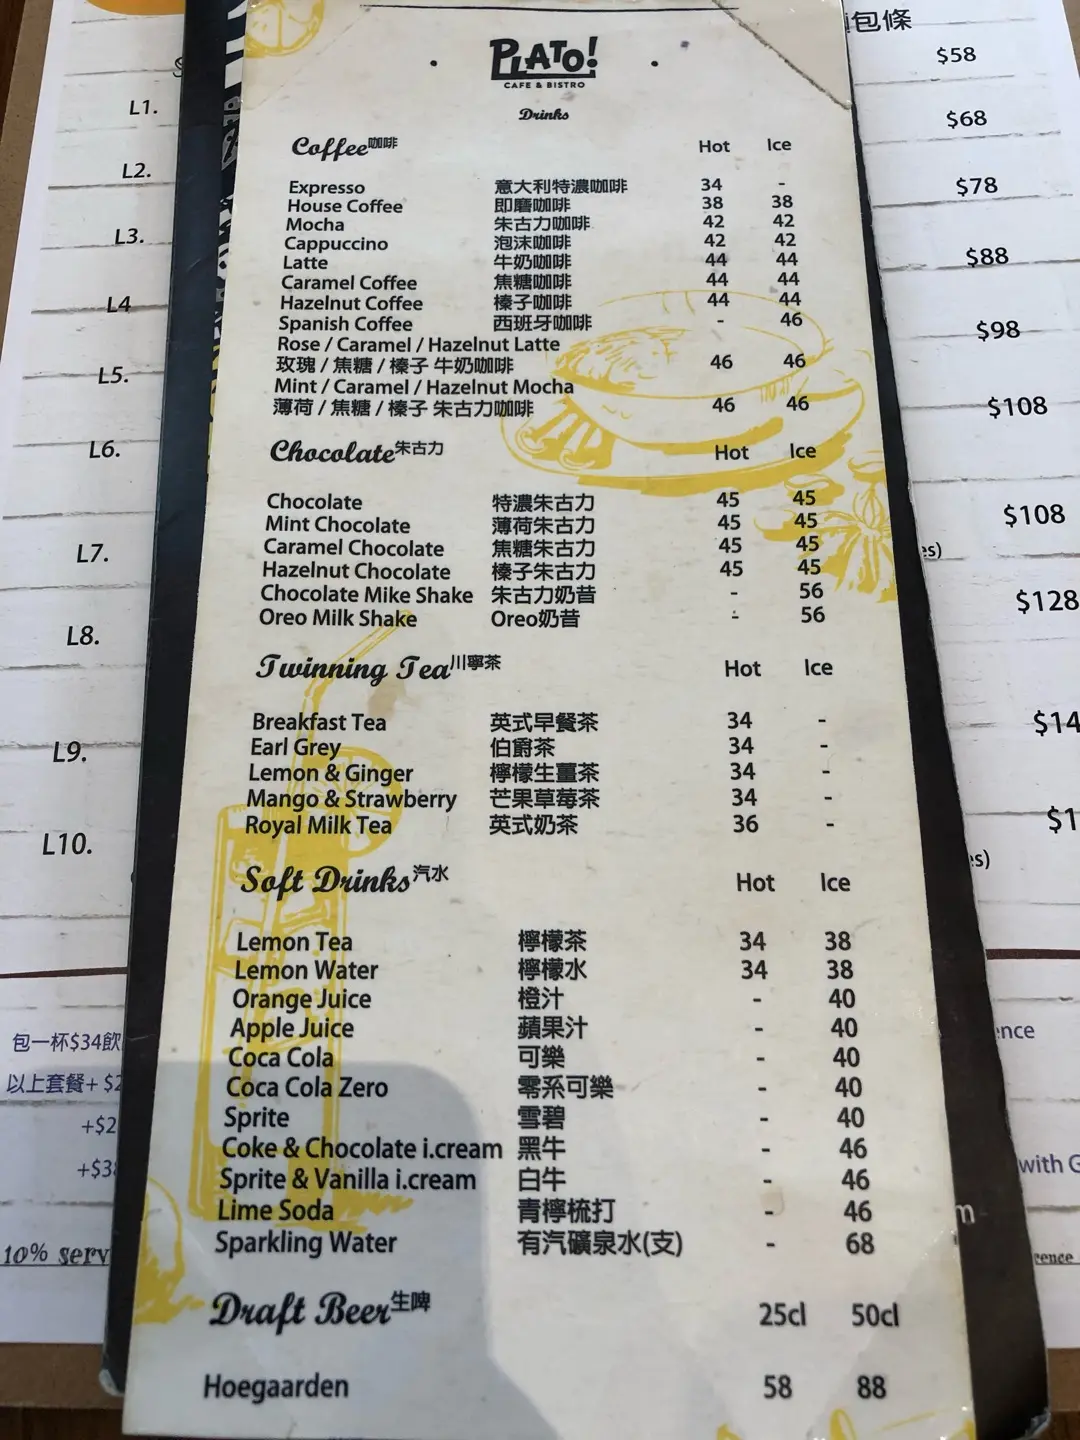 PLATO!
CAFE & BISTRO
Drinks
Coffee咖啡 Hot Ice
Expresso 意大利特濃咖啡 34 -
House Coffee 即磨咖啡 38 38
Mocha 朱古力咖啡 42 42
Cappuccino 泡沫咖啡 42 42
Latte 牛奶咖啡 44 44
Caramel Coffee 焦糖咖啡 44 44
Hazelnut Coffee 榛子咖啡 44 44
Spanish Coffee 西班牙咖啡 - 46
Rose / Caramel / Hazelnut Latte
玫瑰 / 焦糖 / 榛子 牛奶咖啡 46 46
Mint / Caramel / Hazelnut Mocha
薄荷 / 焦糖 / 榛子 朱古力咖啡 46 46
Chocolate朱古力 Hot Ice
Chocolate 特濃朱古力 45 45
Mint Chocolate 薄荷朱古力 45 45
Caramel Chocolate 焦糖朱古力 45 45
Hazelnut Chocolate 榛子朱古力 45 45
Chocolate Mike Shake 朱古力奶昔 - 56
Oreo Milk Shake Oreo奶昔 - 56
Twinning Tea川寧茶 Hot Ice
Breakfast Tea 英式早餐茶 34 -
Earl Grey 伯爵茶 34 -
Lemon & Ginger 檸檬生薑茶 34 -
Mango & Strawberry 芒果草莓茶 34 -
Royal Milk Tea 英式奶茶 36 -
Soft Drinks汽水 Hot Ice
Lemon Tea 檸檬茶 34 38
Lemon Water 檸檬水 34 38
Orange Juice 橙汁 - 40
Apple Juice 蘋果汁 - 40
Coca Cola 可樂 - 40
Coca Cola Zero 零系可樂 - 40
Sprite 雪碧 - 40
Coke & Chocolate i.cream 黑牛 - 46
Sprite & Vanilla i.cream 白牛 - 46
Lime Soda 青檸梳打 - 46
Sparkling Water 有汽礦泉水(支) - 68
Draft Beer生啤 25cl 50cl
Hoegaarden 58 88
L1.
L2.
L3.
L4
L5.
L6.
L7.
L8.
L9.
L10.
包一杯$34飲
以上套餐+ $2
+$2
+$38
10% serv
包條
$58
$68
$78
$88
$98
$108
$108
es)
$128
$14
$1
es)
ence
with G
m
rence